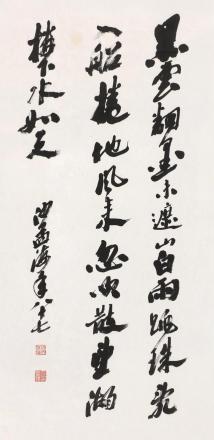 黑雲翻墨未遮山白雨跳珠亂
入船捲地風來忽吹散望湖
樓下水如天
沙孟海年八十七